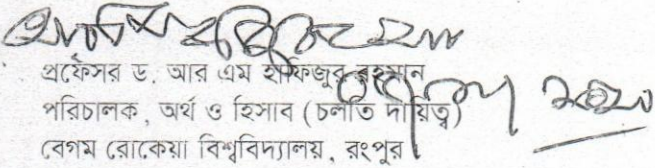 প্রফেসর ড. আর এম হাফিজুর রহমান
পরিচালক, অর্থ ও হিসাব (চলতি দায়িত্ব)
বেগম রোকেয়া বিশ্ববিদ্যালয়, রংপুর